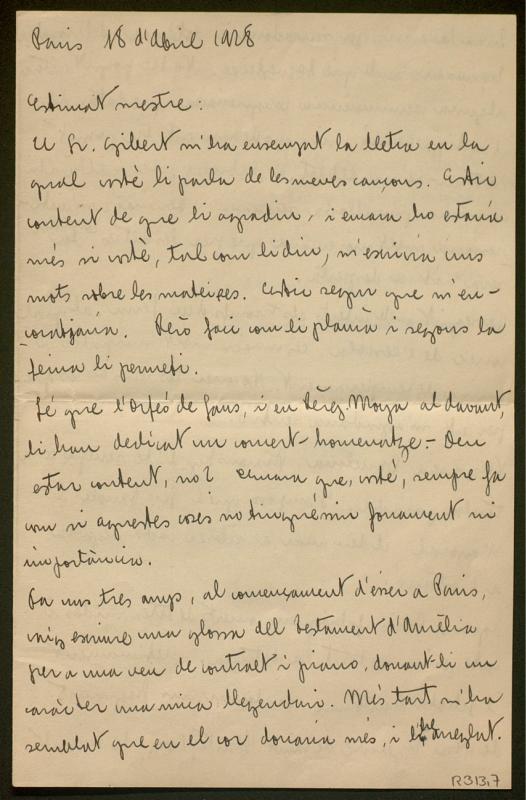 Paris 18 d'abril 1928
Estimat mestre:
El Sr. Gibert m'ha ensenyat la lletra en la
qual vostè li parla de les meves cançons. Estic
content de que li agradin, i encara ho estaria
més si vostè, tal com li diu, m'escrivia uns
mots sobre les mateixes. Estic segur que m'en-
coratjaria. Però faci com li plauria i segons la
feina li permeti.
Sé que l'Orfeó de Sans, i en Pérez-Moya al davant,
li han dedicat un concert-homenatge. - Deu
estar content, no? Encara que, vostè, sempre fa
com si aquestes coses no tinguéssin fonament ni
importància.
Fa uns tres anys, al començament d'ésser a Paris,
vaig escriure una glossa del Testament d'Amèlia
per a una veu de contralt i piano, donant-li un
caràcter una mica llegendari. Més tart m'ha
semblat que en el cor donaria més, i l'he arreglat.
R313,7